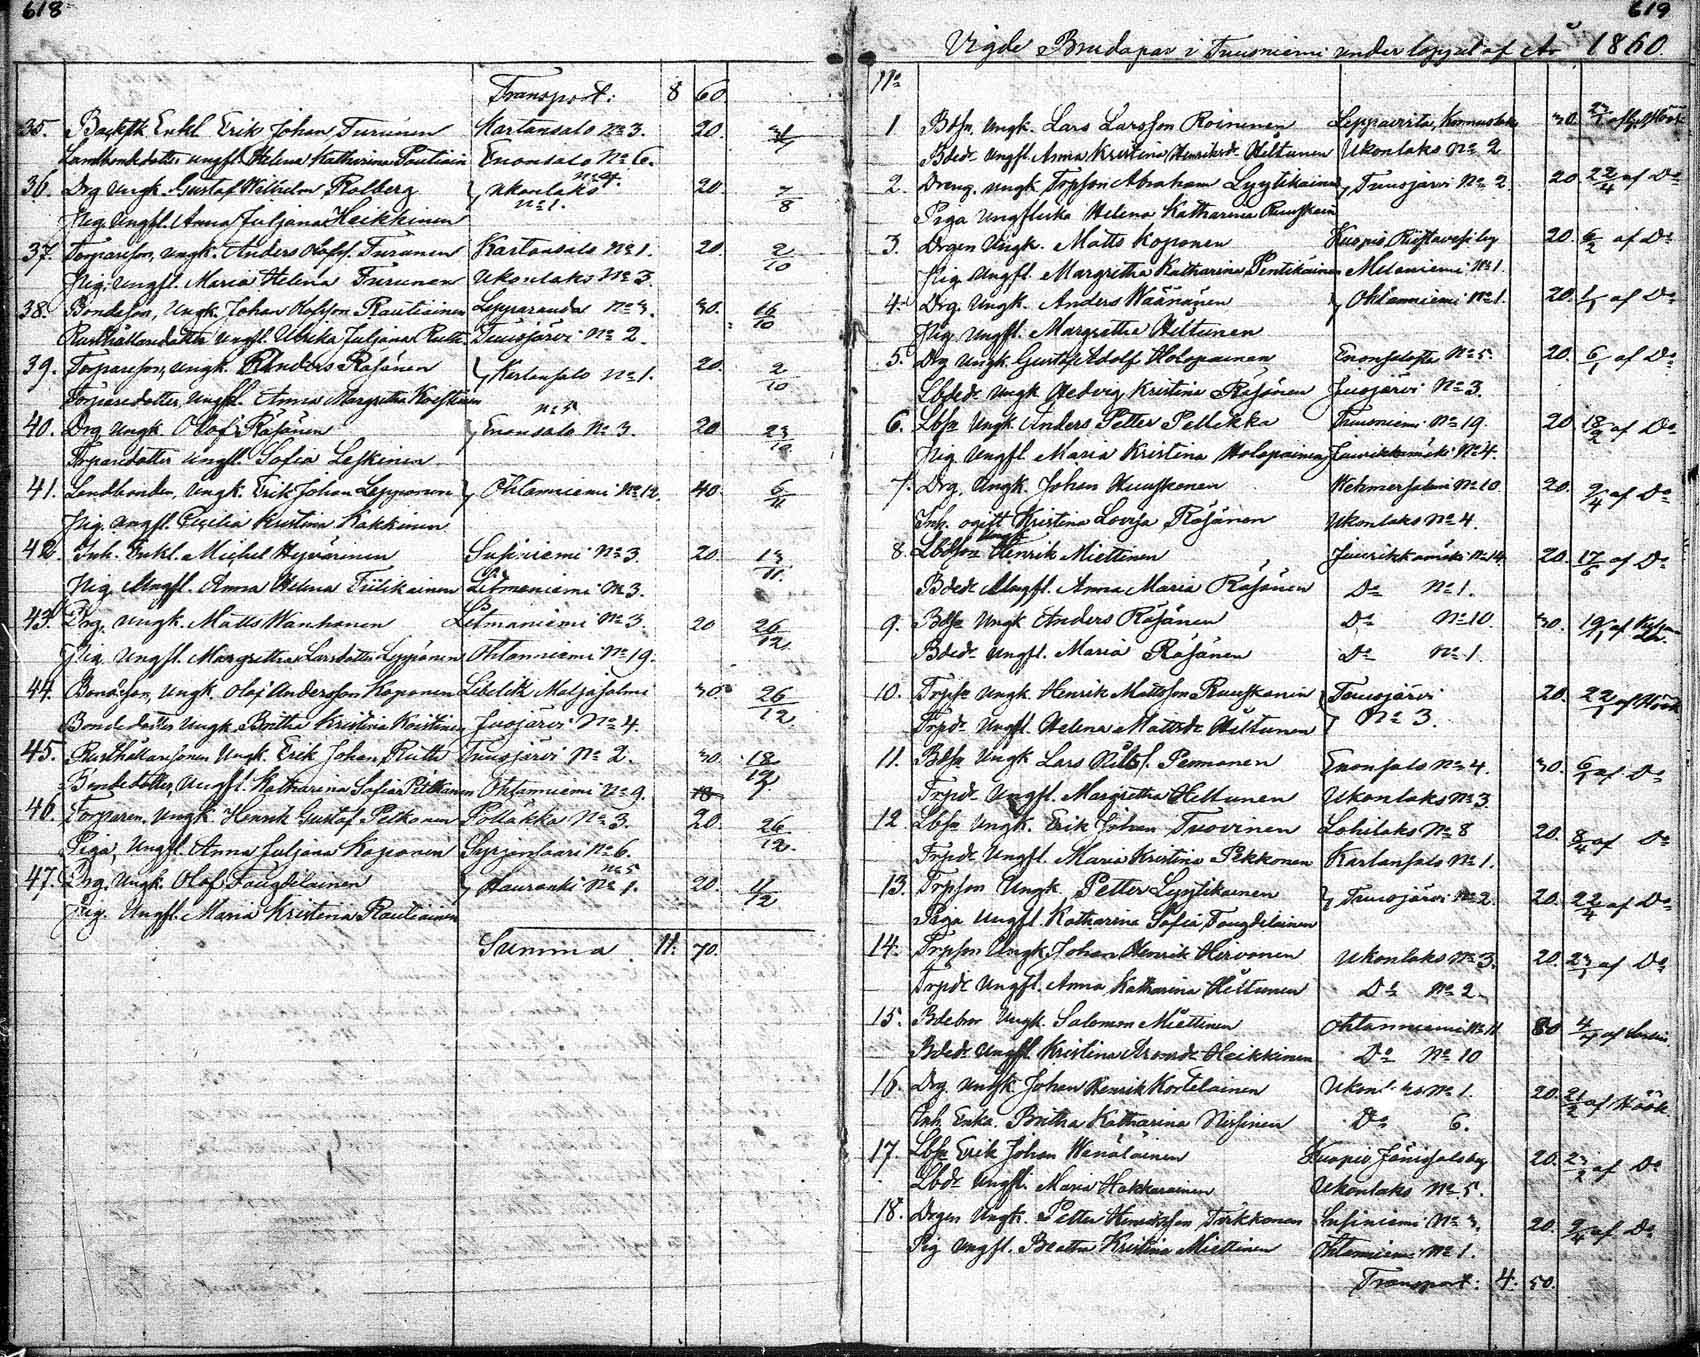 618
Transport: 8 60.
35. Enkl Erik Johan Turunen Kartansalo No 3. 20.
ungfl. Helena Katharina Rautiain Enonsalo No 6.
36. Drg ungk. Gustaf Wilhelm Rolberg Ukonlaks No 4. 20 7/8
Pig. Ungfl. Anna Juljana Heikkinen No 1.
37. Torpareson, ungk. Anders Olofss. Turunen Kartansalo No 1. 20. 2/10
Pig. Ungfl. Maria Helena Turunen Ukonlaks No 3.
38. Bondeson, Ungk. Johan Rautiainen Lepparanda No 3. 30. 16/10
Rusthållaredotter Ungfl. Ulrika Juljana Rutt Tuusjärvi No 2.
39. Torpareson, ungk. Anders Räsänen Kartansalo No 1. 20. 2/10
Torparedotter, ungfl. Anna Margretha
40. Drg. Ungk. Olof Räsänen No 5 Enonsalo No 3. 20
Torparedotter Ungfl. Sofia Leskinen
41. Landbonden, Ungk. Erik Johan Lepponen Ohtanniemi No 12. 40. 6/11
Pig. Ungfl. Cecilia Kristina Kakkinen
42. Inh. Enkl. Michel Hyvärinen Susiniemi No 3. 20. 13/11.
Pig. Ungfl. Anna Helena Tiilikainen Litmaniemi No 3.
43. Drg. Ungk. Matts Wanhonen Litmaniemi No 3. 20 26/12.
Pig. Ungfl. Margretha Larsdotter Lyypänen Ohtanniemi No 19.
44. Bondeson, Ungk. Olof Andersson Koponen Libelits 30. 26/12.
Bondedotter Ungk. Britha Kristina Juojärvi No 4.
45. Rusthållaresonen Ungk. Erik Johan Rutt Tuusjärvi No 2. 30. 18/12.
Bondedotter, Ungfl. Katharina Sofia Pitkänen Ohtanniemi No 9.
46. Torparen, Ungk. Henrik Gustaf Pelkonen Pölläkkä No 3. 20. 26/12.
Piga, Ungfl. Anna Juljana Koponen No 6.
47. Drg. Ungk. Olof Taugdelainen No 5 No 1. 20.
Pig. Ungfl. Maria Kristina Rautiainen
Summa 11: 70.
619
Vigde Brudapar i Tuusniemi under loppet af År 1860.
No
1. Bdsn, Ungk. Lars Larsson Roininen Leppävirta, 30.
Bdedr Ungfl. Anna Kristina Henriksdr Heltunen Ukonlaks No 2
2. Dreng. Ungk Trpson Abraham Lyytikäinen Tuusjärvi No 2. 20 22/4 af Do
Piga Ungflicka Helena Katharina Ruuskain
3. Drgen Ungk. Matts Koponen Kuopio Riistavesi by 20. 6/2 af Do
Pig. Ungfl. Margretha Katharina Pentikäinen Melaniemi No 1.
4. Drg. Ungk. Anders Wäänänen Ohtanniemi No 1. 20. af Do
Pig Ungfl. Margretha Heltunen
5. Drg Ungk. Gustaf Adolf Holopainen No 5. 20. af Do
Lbdedr Ungk Hedvig Kristina Räsänen Juojärvi No 3.
6. Lbsn Ungk Anders Petter Pellikka Tuusniemi No 19. 20 18/2 af Do
Pig Ungfl Maria Kristina Holopainen Juurikkamäki No 4.
7. Drg. Ungk. Johan Huuskonen Wehmersalmi No 10. 20. 9/4 af Do
Inh. ogift Kristina Lovisa Räsänen Ukonlaks No 4.
8. Lbdson Ungk Henrik Miettinen Juurikkamäki No 14. 20. 17/6 af Do
Bdedr Ungfl. Anna Maria Räsänen Do No 1.
9. Bdsn Ungk Anders Räsänen Do No 10. 30.
Bdedr Ungfl. Maria Räsänen Do No 1.
10. Trpsn Ungk Henrik Mattsson Ruuskanen Tuusjärvi 20. 22/1 af Höök
Trpdr Ungfl. Helena Mattsdr Heltunen No 3.
11. Bdsn Ungk Lars Nilss. Pennanen Enonsalo No 4. 30. af Do
Trpdr Ungfl. Margretha Heltunen Ukonlaks No 3
12. Lbsn Ungk. Erik Johan Tuovinen Lohilaks No 8 20. 8/4 af Do
Trpdr Ungfl. Maria Kristina Pekkonen Kartansalo No 1.
13. Trpson Ungk Petter Lyytikainen Tuusjärvi No 2. 20. 22/4 af Do
Piga Ungfl. Katharina Sofia Taugdelainen
14. Trpson Ungk. Johan Henrik Hirvonen Ukonlaks No 3. 20. af Do
Trpdr Ungfl. Anna Katharina Heltunen Do No 2.
15. Ungk. Salomon Miettinen Ohtanniemi No 11 80
Bdedr Ungfl. Kristina Heikkinen Do No 10
16. Drg. Ungk Johan Henrik Kortelainen No 1. 20. 21/2 af Höök
Inh. Enka. Britha Katharina Nissinen Do 6.
17. Lbsn Erik Johan Wänäläinen Kuopio 20. af Do
Lbdr Ungfl. Maria Hakkarainen Ukonlaks No 5.
18. Drgen Ungk. Petter Henriksson Tirkkonen Susiniemi No 3. 20. 9/4 af Do
Pig Ungfl. Beatha Kristina Miettinen Ohtanniemi No 1.
Transport: 4. 50.